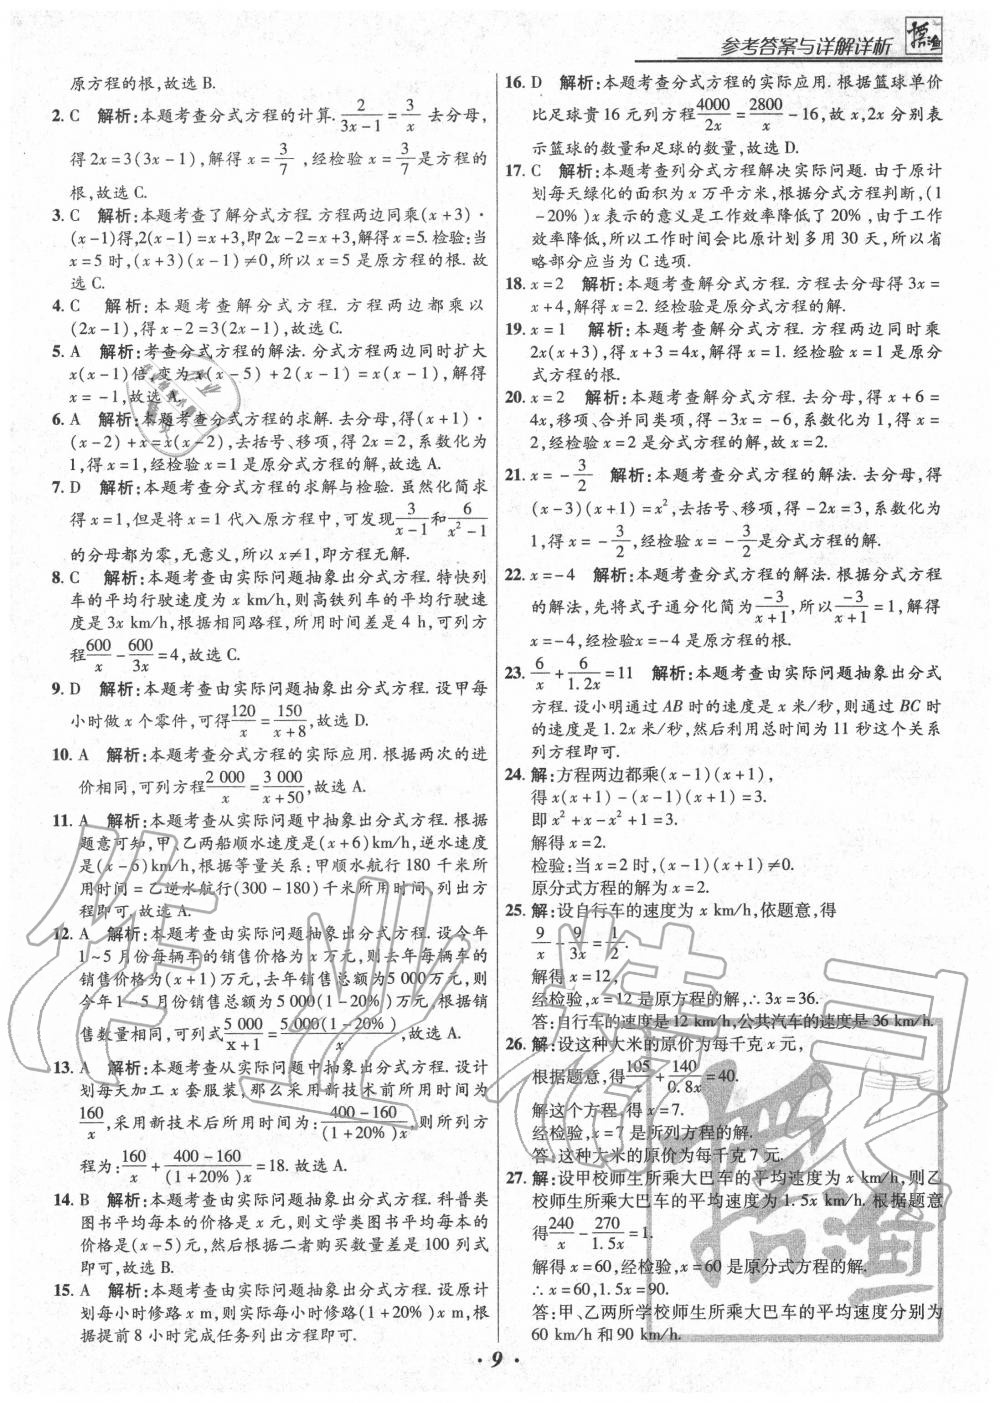 参考答案与详解详析
原方程的根,故选 B.
2. C 解析:本题考查分式方程的计算. 2/(3x-1) = 3/x 去分母,
得 2x=3(3x-1),解得 x= 3/7 ,经检验 x= 3/7 是方程的
根,故选 C.
3. C 解析:本题考查了解分式方程. 方程两边同乘(x+3)·
(x-1)得,2(x-1)=x+3,即 2x-2=x+3,解得 x=5. 检验:当
x=5 时,(x+3)(x-1)≠0,所以 x=5 是原方程的根. 故
选 C.
4. C 解析:本题考查解分式方程. 方程两边都乘以
(2x-1),得 x-2=3(2x-1),故选 C.
5. A 解析:考查分式方程的解法. 分式方程两边同时扩大
x(x-1)倍,变为 x(x-5)+2(x-1)=x(x-1),解得
x=-1,故选 A.
6. A 解析:本题考查分式方程的求解. 去分母,得(x+1)·
(x-2)+x=x(x-2),去括号、移项,得 2x=2,系数化为
1,得 x=1,经检验 x=1 是原分式方程的解,故选 A.
7. D 解析:本题考查分式方程的求解与检验. 虽然化简求
得 x=1,但是将 x=1 代入原方程中,可发现 3/(x-1) 和 6/(x²-1)
的分母都为零,无意义,所以 x≠1,即方程无解.
8. C 解析:本题考查由实际问题抽象出分式方程. 特快列
车的平均行驶速度为 x km/h,则高铁列车的平均行驶速
度是 3x km/h,根据相同路程,所用时间差是 4 h,可列方
程 600/x - 600/3x =4,故选 C.
9. D 解析:本题考查由实际问题抽象出分式方程. 设甲每
小时做 x 个零件,可得 120/x = 150/(x+8),故选 D.
10. A 解析:本题考查分式方程的实际应用. 根据两次的进
价相同,可列方程 2 000/x = 3 000/(x+50),故选 A.
11. A 解析:本题考查从实际问题中抽象出分式方程. 根据
题意可知,甲、乙两船顺水速度是(x+6)km/h,逆水速度
是(x-6)km/h,根据等量关系:甲顺水航行 180 千米所
用时间=乙逆水航行(300-180)千米所用时间,列出方
程即可. 故选 A.
12. A 解析:本题考查由实际问题抽象出分式方程. 设今年
1~5 月份每辆车的销售价格为 x 万元,则去年每辆车的
销售价格为(x+1)万元,去年销售总额为 5 000 万元,则
今年 1~5 月份销售总额为 5 000(1-20%)万元,根据销
售数量相同,可列式 5 000/(x+1) = 5 000(1-20%)/x,故选 A.
13. A 解析:本题考查从实际问题中抽象出分式方程. 设计
划每天加工 x 套服装,那么采用新技术前所用时间为
160/x,采用新技术后所用时间为: (400-160)/((1+20%)x),则所列方
程为: 160/x + (400-160)/((1+20%)x) =18. 故选 A.
14. B 解析:本题考查由实际问题抽象出分式方程. 科普类
图书平均每本的价格是 x 元,则文学类图书平均每本的
价格是(x-5)元,然后根据二者购买数量差是 100 列式
即可,故选 B.
15. A 解析:本题考查由实际问题抽象出分式方程. 设原计
划每小时修路 x m,则实际每小时修路(1+20%)x m,根
据提前 8 小时完成任务列出方程即可.
16. D 解析:本题考查分式方程的实际应用. 根据篮球单价
比足球贵 16 元列方程 4000/2x = 2800/x -16,故 x,2x 分别表
示篮球的数量和足球的数量,故选 D.
17. C 解析:本题考查列分式方程解决实际问题. 由于原计
划每天绿化的面积为 x 万平方米,根据分式方程判断,(1
-20%)x 表示的意义是工作效率降低了 20%,由于工作
效率降低,所以工作时间会比原计划多用 30 天,所以省
略部分应当为 C 选项.
18. x=2 解析:本题考查解分式方程. 方程去分母得 3x=
x+4,解得 x=2. 经检验是原分式方程的解.
19. x=1 解析:本题考查解分式方程. 方程两边同时乘
2x(x+3),得 x+3=4x,解得 x=1. 经检验 x=1 是原分
式方程的根.
20. x=2 解析:本题考查解分式方程. 去分母,得 x+6=
4x,移项、合并同类项,得-3x=-6,系数化为 1,得 x=
2,经检验 x=2 是分式方程的解,故 x=2.
21. x=- 3/2 解析:本题考查分式方程的解法. 去分母,得
(x-3)(x+1)=x²,去括号、移项,得-2x=3,系数化为
1,得 x=- 3/2,经检验 x=- 3/2 是分式方程的解.
22. x=-4 解析:本题考查分式方程的解法. 根据分式方程
的解法,先将式子通分化简为 -3/(x+1),所以 -3/(x+1) =1,解得
x=-4,经检验 x=-4 是原方程的根.
23. 6/x + 6/1.2x =11 解析:本题考查由实际问题抽象出分式
方程. 设小明通过 AB 时的速度是 x 米/秒,则通过 BC 时
的速度是 1.2x 米/秒,然后利用总时间为 11 秒这个关系
列方程即可.
24. 解:方程两边都乘(x-1)(x+1),
得 x(x+1)-(x-1)(x+1)=3.
即 x²+x-x²+1=3.
解得 x=2.
检验:当 x=2 时,(x-1)(x+1)≠0.
原分式方程的解为 x=2.
25. 解:设自行车的速度为 x km/h,依题意,得
9/x - 9/3x = 1/2.
解得 x=12,
经检验,x=12 是原方程的解,∴3x=36.
答:自行车的速度是 12 km/h,公共汽车的速度是 36 km/h.
26. 解:设这种大米的原价为每千克 x 元,
根据题意,得 105/x + 140/0.8x =40.
解这个方程. 得 x=7.
经检验,x=7 是所列方程的解.
答:这种大米的原价为每千克 7 元.
27. 解:设甲校师生所乘大巴车的平均速度为 x km/h,则乙
校师生所乘大巴车的平均速度为 1.5x km/h. 根据题意
得 240/x - 270/1.5x =1.
解得 x=60,经检验,x=60 是原分式方程的解.
∴x=60,1.5x=90.
答:甲、乙两所学校师生所乘大巴车的平均速度分别为
60 km/h 和 90 km/h.
· 9 ·
作业精灵